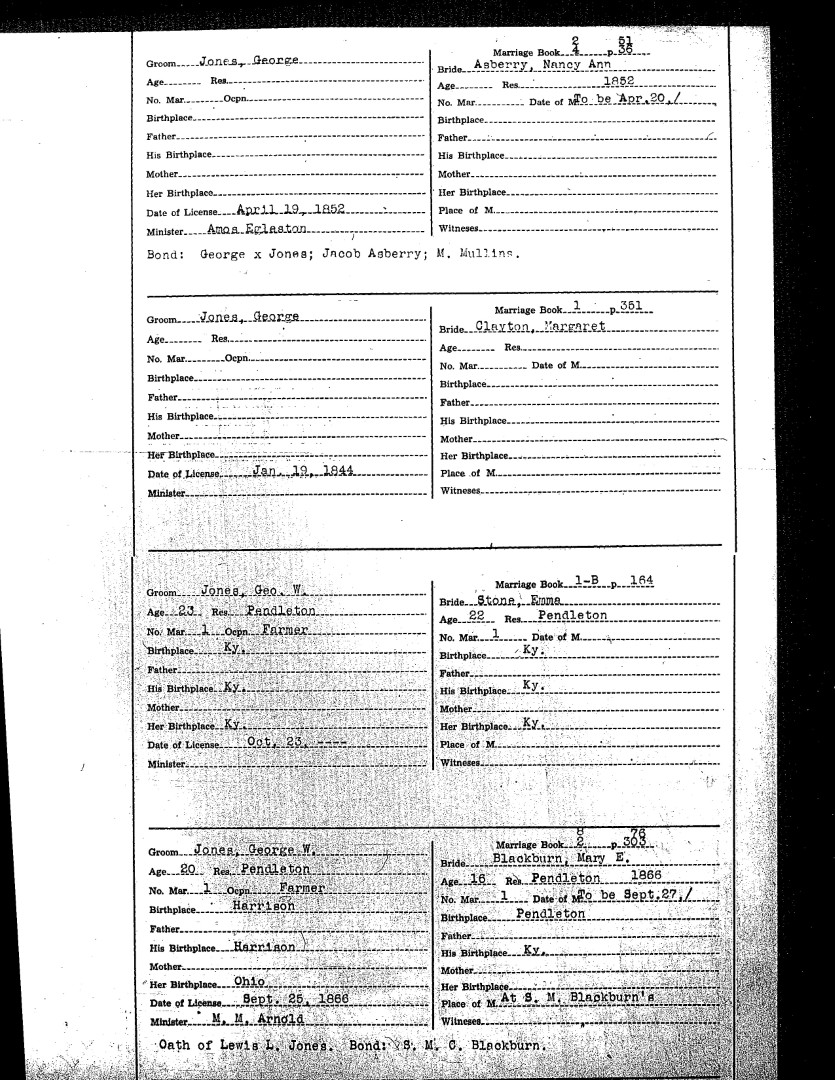 Groom Jones, George
Age Res.
No. Mar. Ocpn.
Birthplace
Father
His Birthplace
Mother
Her Birthplace
Date of License April 19, 1852
Minister Amos Egleston
2 51
Marriage Book 4 p. 36
Bride Asberry, Nancy Ann
Age Res. 1852
No. Mar. Date of M. To be Apr. 20, /
Birthplace
Father
His Birthplace
Mother
Her Birthplace
Place of M.
Witneses
Bond: George x Jones; Jacob Asberry; M. Mullins.
Groom Jones, George
Age Res.
No. Mar. Ocpn.
Birthplace
Father
His Birthplace
Mother
Her Birthplace
Date of License Jan. 19, 1844
Minister
Marriage Book 1 p. 351
Bride Clayton, Margaret
Age Res.
No. Mar. Date of M.
Birthplace
Father
His Birthplace
Mother
Her Birthplace
Place of M.
Witneses
Groom Jones, Geo. W.
Age 23 Res. Pendleton
No. Mar. 1 Ocpn. Farmer
Birthplace Ky.
Father
His Birthplace Ky.
Mother
Her Birthplace Ky.
Date of License Oct. 23, ----
Minister
Marriage Book 1-B p. 164
Bride Stone, Emma
Age 22 Res. Pendleton
No. Mar. 1 Date of M.
Birthplace Ky.
Father
His Birthplace Ky.
Mother
Her Birthplace Ky.
Place of M.
Witneses
Groom Jones, George W.
Age 20 Res. Pendleton
No. Mar. 1 Ocpn. Farmer
Birthplace Harrison
Father
His Birthplace Harrison
Mother
Her Birthplace Ohio
Date of License Sept. 25, 1866
Minister M. M. Arnold
8 76
Marriage Book 2 p. 303
Bride Blackburn, Mary E.
Age 16 Res. Pendleton 1866
No. Mar. 1 Date of M. To be Sept. 27, /
Birthplace Pendleton
Father
His Birthplace Ky.
Mother
Her Birthplace
Place of M. At S. M. Blackburn's
Witneses
Oath of Lewis L. Jones. Bond: S. M. C. Blackburn.